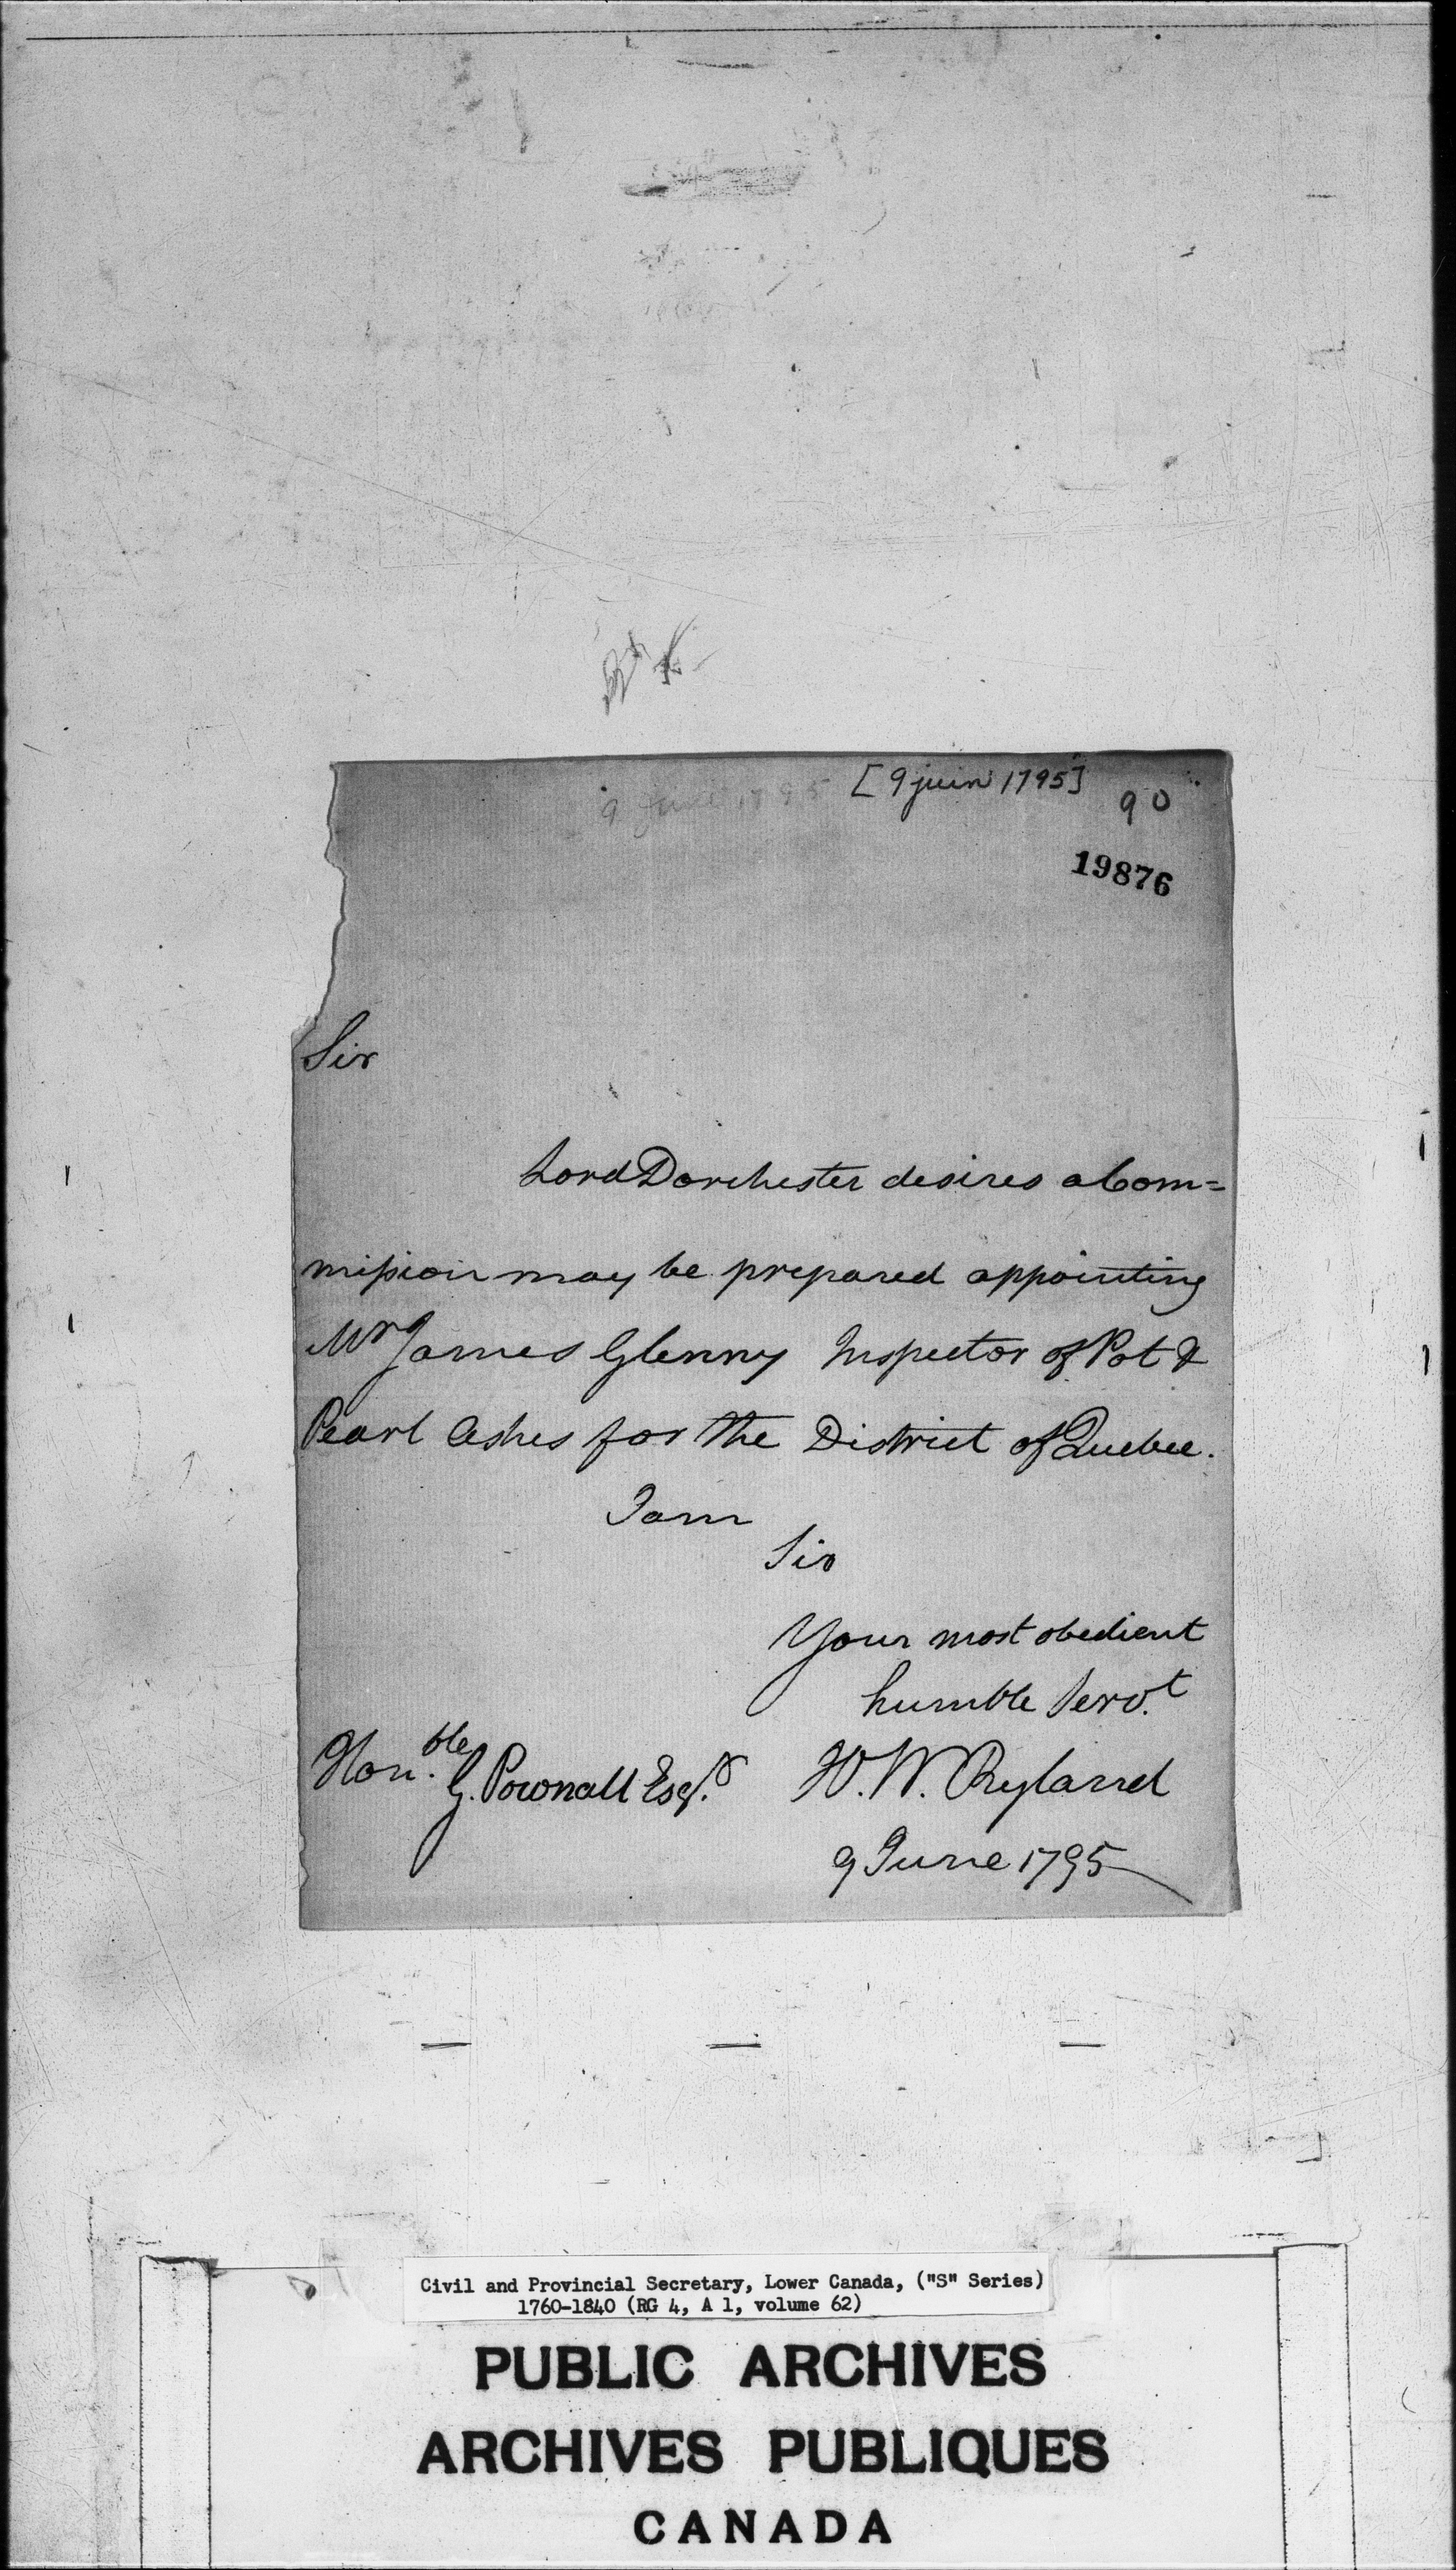 9 June 1795 [9 juin 1795]
90
19876
Sir
Lord Dorchester desires a Com=
mission may be prepared appointing
Mr James Glenny Inspector of Pot &
Pearl Ashes for the District of Quebec.
I am
Sir
Your most obedient
humble Servt.
Honble. G. Pownall Esqr. H. W. Ryland
9 June 1795
Civil and Provincial Secretary, Lower Canada, ("S" Series)
1760-1840 (RG 4, A 1, volume 62)
PUBLIC ARCHIVES
ARCHIVES PUBLIQUES
CANADA